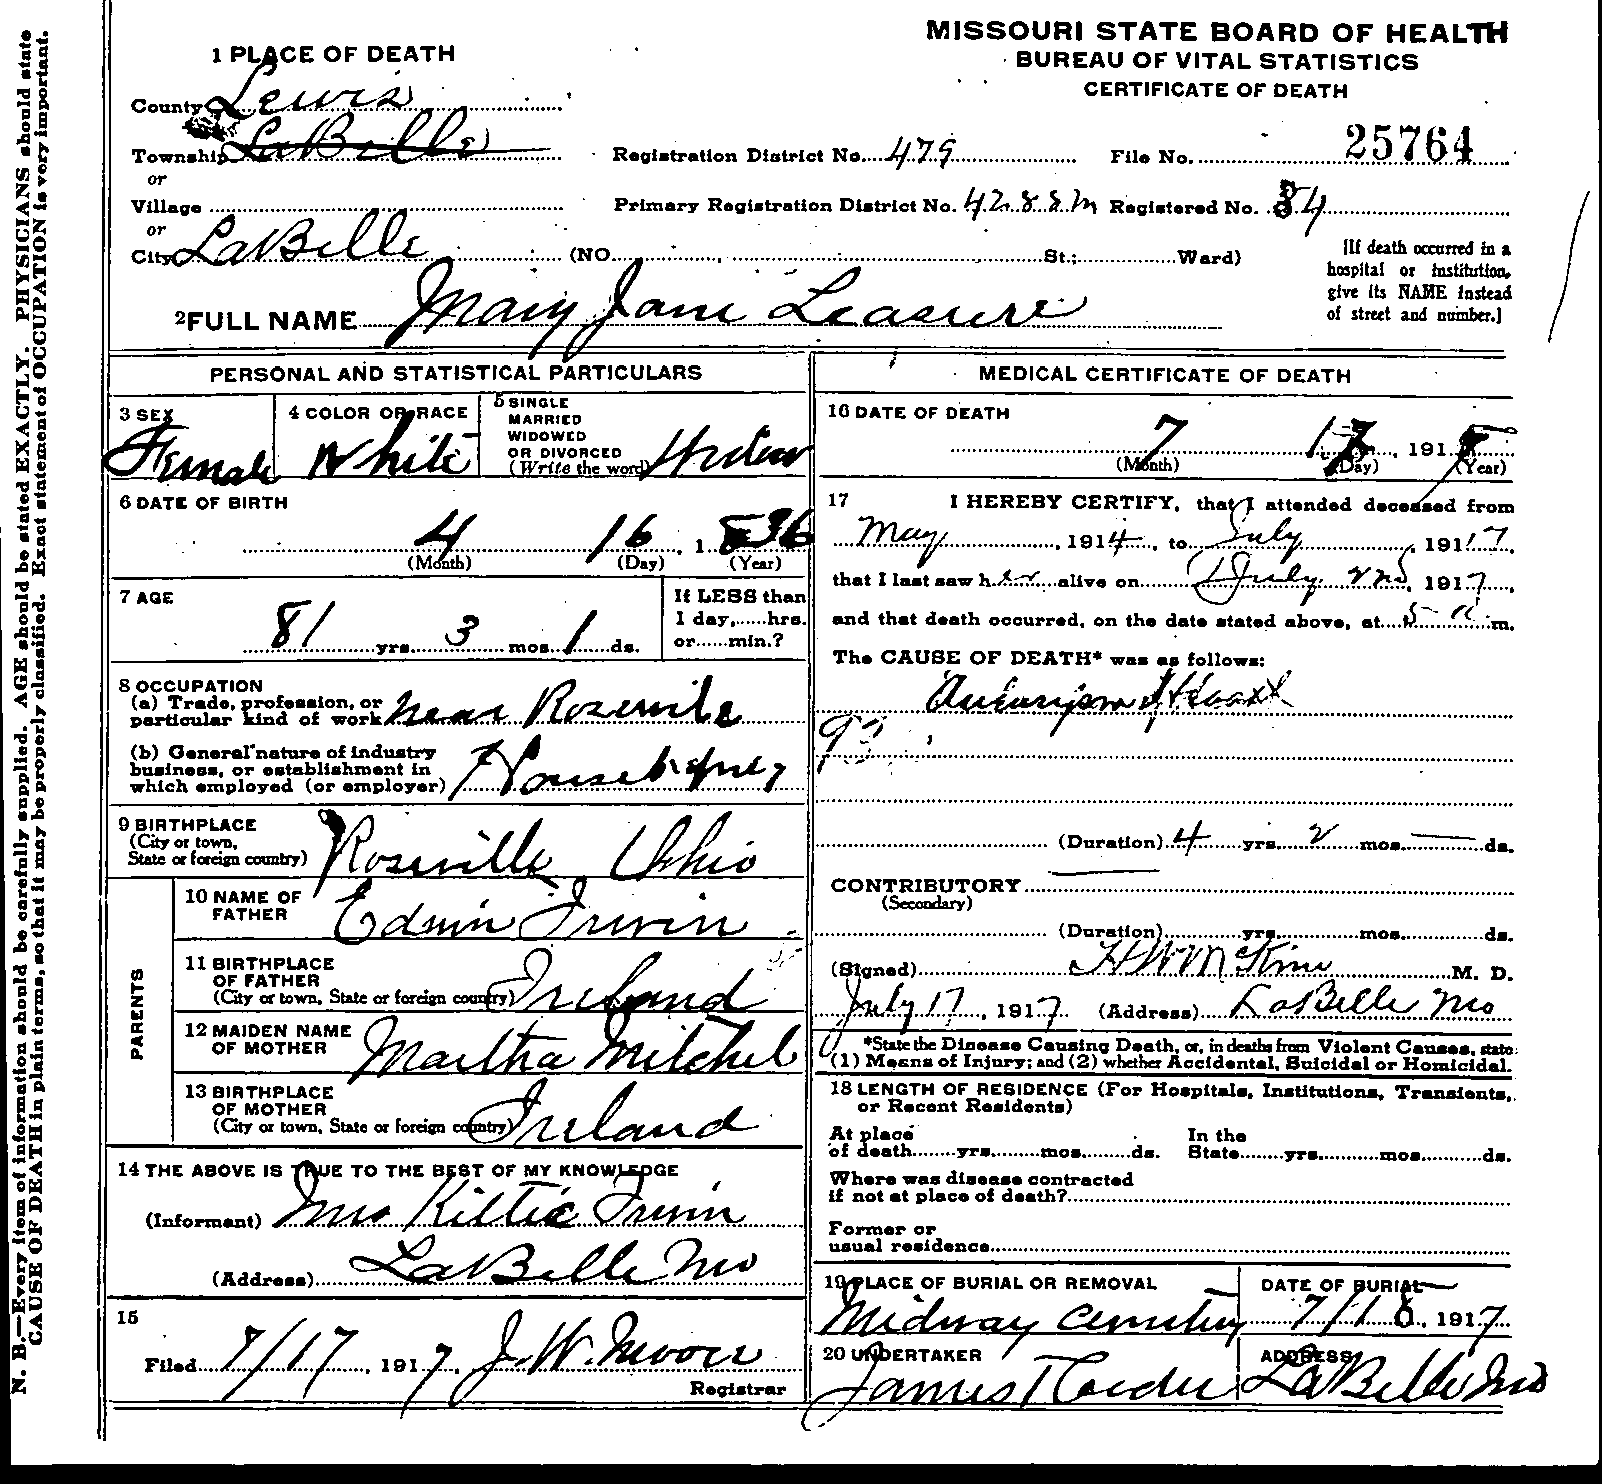 MISSOURI STATE BOARD OF HEALTH
BUREAU OF VITAL STATISTICS
CERTIFICATE OF DEATH
1 PLACE OF DEATH
County Lewis
Township LaBelle
or
Village
or
City LaBelle (NO. St.; Ward)
Registration District No. 479 File No. 25764
Primary Registration District No. 4288 M Registered No. 34
[If death occurred in a
hospital or institution,
give its NAME instead
of street and number.]
2 FULL NAME Mary Jane Leasure
PERSONAL AND STATISTICAL PARTICULARS
3 SEX
Female
4 COLOR OR RACE
White
5 SINGLE
MARRIED
WIDOWED
OR DIVORCED
(Write the word)
6 DATE OF BIRTH
4 16, 1836
(Month) (Day) (Year)
7 AGE
81 yrs. 3 mos. 1 ds.
If LESS than
1 day, hrs.
or min.?
8 OCCUPATION
(a) Trade, profession, or
particular kind of work near Roseville
(b) General nature of industry
business, or establishment in
which employed (or employer)
9 BIRTHPLACE
(City or town,
State or foreign country) Roseville Ohio
PARENTS
10 NAME OF
FATHER Edwin Irwin
11 BIRTHPLACE
OF FATHER
(City or town, State or foreign country) Ireland
12 MAIDEN NAME
OF MOTHER Martha Mitchel
13 BIRTHPLACE
OF MOTHER
(City or town, State or foreign country) Ireland
14 THE ABOVE IS TRUE TO THE BEST OF MY KNOWLEDGE
(Informant) Mrs Kittie Irwin
(Address) LaBelle Mo
15
Filed 7/17, 1917, J. W. Moore
Registrar
MEDICAL CERTIFICATE OF DEATH
16 DATE OF DEATH
7 17, 191
(Month) (Day) (Year)
17 I HEREBY CERTIFY, that I attended deceased from
May, 1914, to July, 1917,
that I last saw her alive on July 2nd, 1917,
and that death occurred, on the date stated above, at 5 a m.
The CAUSE OF DEATH* was as follows:
Aneurysm of Heart
93
(Duration) 4 yrs. 2 mos. — ds.
CONTRIBUTORY
(Secondary)
(Duration) yrs. mos. ds.
(Signed) M. D.
July 17, 1917 (Address) LaBelle Mo
*State the Disease Causing Death, or, in deaths from Violent Causes, state
(1) Means of Injury; and (2) whether Accidental, Suicidal or Homicidal.
18 LENGTH OF RESIDENCE (For Hospitals, Institutions, Transients,
or Recent Residents)
At place In the
of death yrs. mos. ds. State yrs. mos. ds.
Where was disease contracted
if not at place of death?
Former or
usual residence
19 PLACE OF BURIAL OR REMOVAL
Midway Cemetery
DATE OF BURIAL
7/18, 1917
20 UNDERTAKER
James T Coder
ADDRESS
LaBelle Mo
N. B.—Every item of information should be carefully supplied. AGE should be stated EXACTLY. PHYSICIANS should state
CAUSE OF DEATH in plain terms, so that it may be properly classified. Exact statement of OCCUPATION is very important.